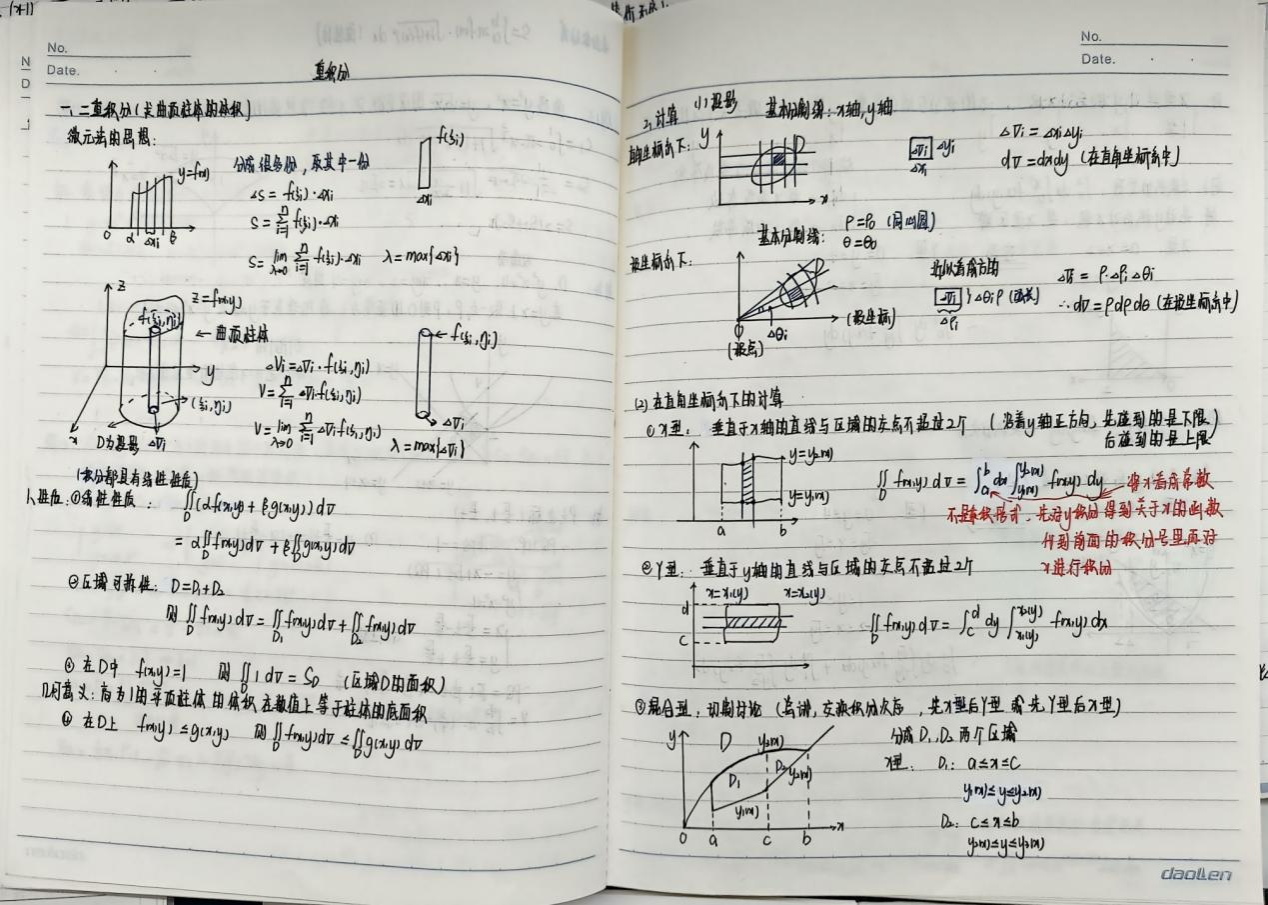 (x-1)
No.
Date.
重积分
一、二重积分(求曲顶柱体的体积)
微元法的思想:
y=f(x)
0 a Δxi b
分成很多份,取其中一份
ΔS = f(ξi)·Δxi
S = Σ_{i=1}^{n} f(ξi)·Δxi
S = lim_{λ→0} Σ_{i=1}^{n} f(ξi)·Δxi λ = max{Δxi}
f(ξi)
Δxi
z
z=f(x,y)
f(ξi,ηi)
← 曲顶柱体
y
(ξi,ηi)
x D为投影 Δσi
ΔVi=Δσi·f(ξi,ηi)
V=Σ_{i=1}^{n} Δσi·f(ξi,ηi)
V=lim_{λ→0} Σ_{i=1}^{n} Δσi f(ξi,ηi)
f(ξi,ηi)
Δσi
λ=max{Δσi}
(积分都具有线性性质)
1、性质:①线性性质: ∬_D (αf(x,y)+βg(x,y))dσ
= α∬_D f(x,y)dσ + β∬_D g(x,y)dσ
②区域可拆性: D=D₁+D₂
则 ∬_D f(x,y)dσ = ∬_{D₁} f(x,y)dσ + ∬_{D₂} f(x,y)dσ
在D中 f(x,y)=1 则 ∬_D 1dσ = S_D (区域D的面积)
几何意义:高为1的平顶柱体的体积在数值上等于柱体的底面积
④在D上 f(x,y)≤g(x,y) 则∬_D f(x,y)dσ ≤ ∬_D g(x,y)dσ
No.
Date.
2、计算 (1)投影 基本分割线:x轴,y轴
直角坐标系下: y
D
x
Δσi Δyi
Δxi
Δσi = ΔxiΔyi
dσ = dxdy (在直角坐标系中)
基本分割线: ρ=ρ₀ (同心圆)
θ=θ₀
极坐标系下:
D
(极坐标)
0 Δθi
(极点)
近似看成方的
Δσi }Δθiρ (弧长)
Δρi
Δσi = ρ·Δρi·Δθi
∴dσ = ρdρdθ (在极坐标系中)
(2) 在直角坐标系下的计算
①X型: 垂直于x轴的直线与区域的交点不超过2个 (沿着y轴正方向,先碰到的是下限
后碰到的是上限)
y=y₂(x)
y=y₁(x)
a b
∬_D f(x,y)dσ = ∫_a^b dx ∫_{y₁(x)}^{y₂(x)} f(x,y)dy
将x看成常数
不是乘积形式,先对y积分得到关于x的函数
代到前面的积分号里再对
x进行积分
②Y型: 垂直于y轴的直线与区域的交点不超过2个
x=x₁(y) x=x₂(y)
d
c
∬_D f(x,y)dσ = ∫_c^d dy ∫_{x₁(y)}^{x₂(y)} f(x,y)dx
③混合型:切割讨论 (交换积分次序,先X型后Y型 或 先Y型后X型)
y D y₃(x)
D₁ D₂ y₂(x)
y₁(x)
0 a c b x
分成D₁、D₂两个区域
X型: D₁: a≤x≤c
y₁(x)≤y≤y₃(x)
D₂: c≤x≤b
y₂(x)≤y≤y₃(x)
daoLen